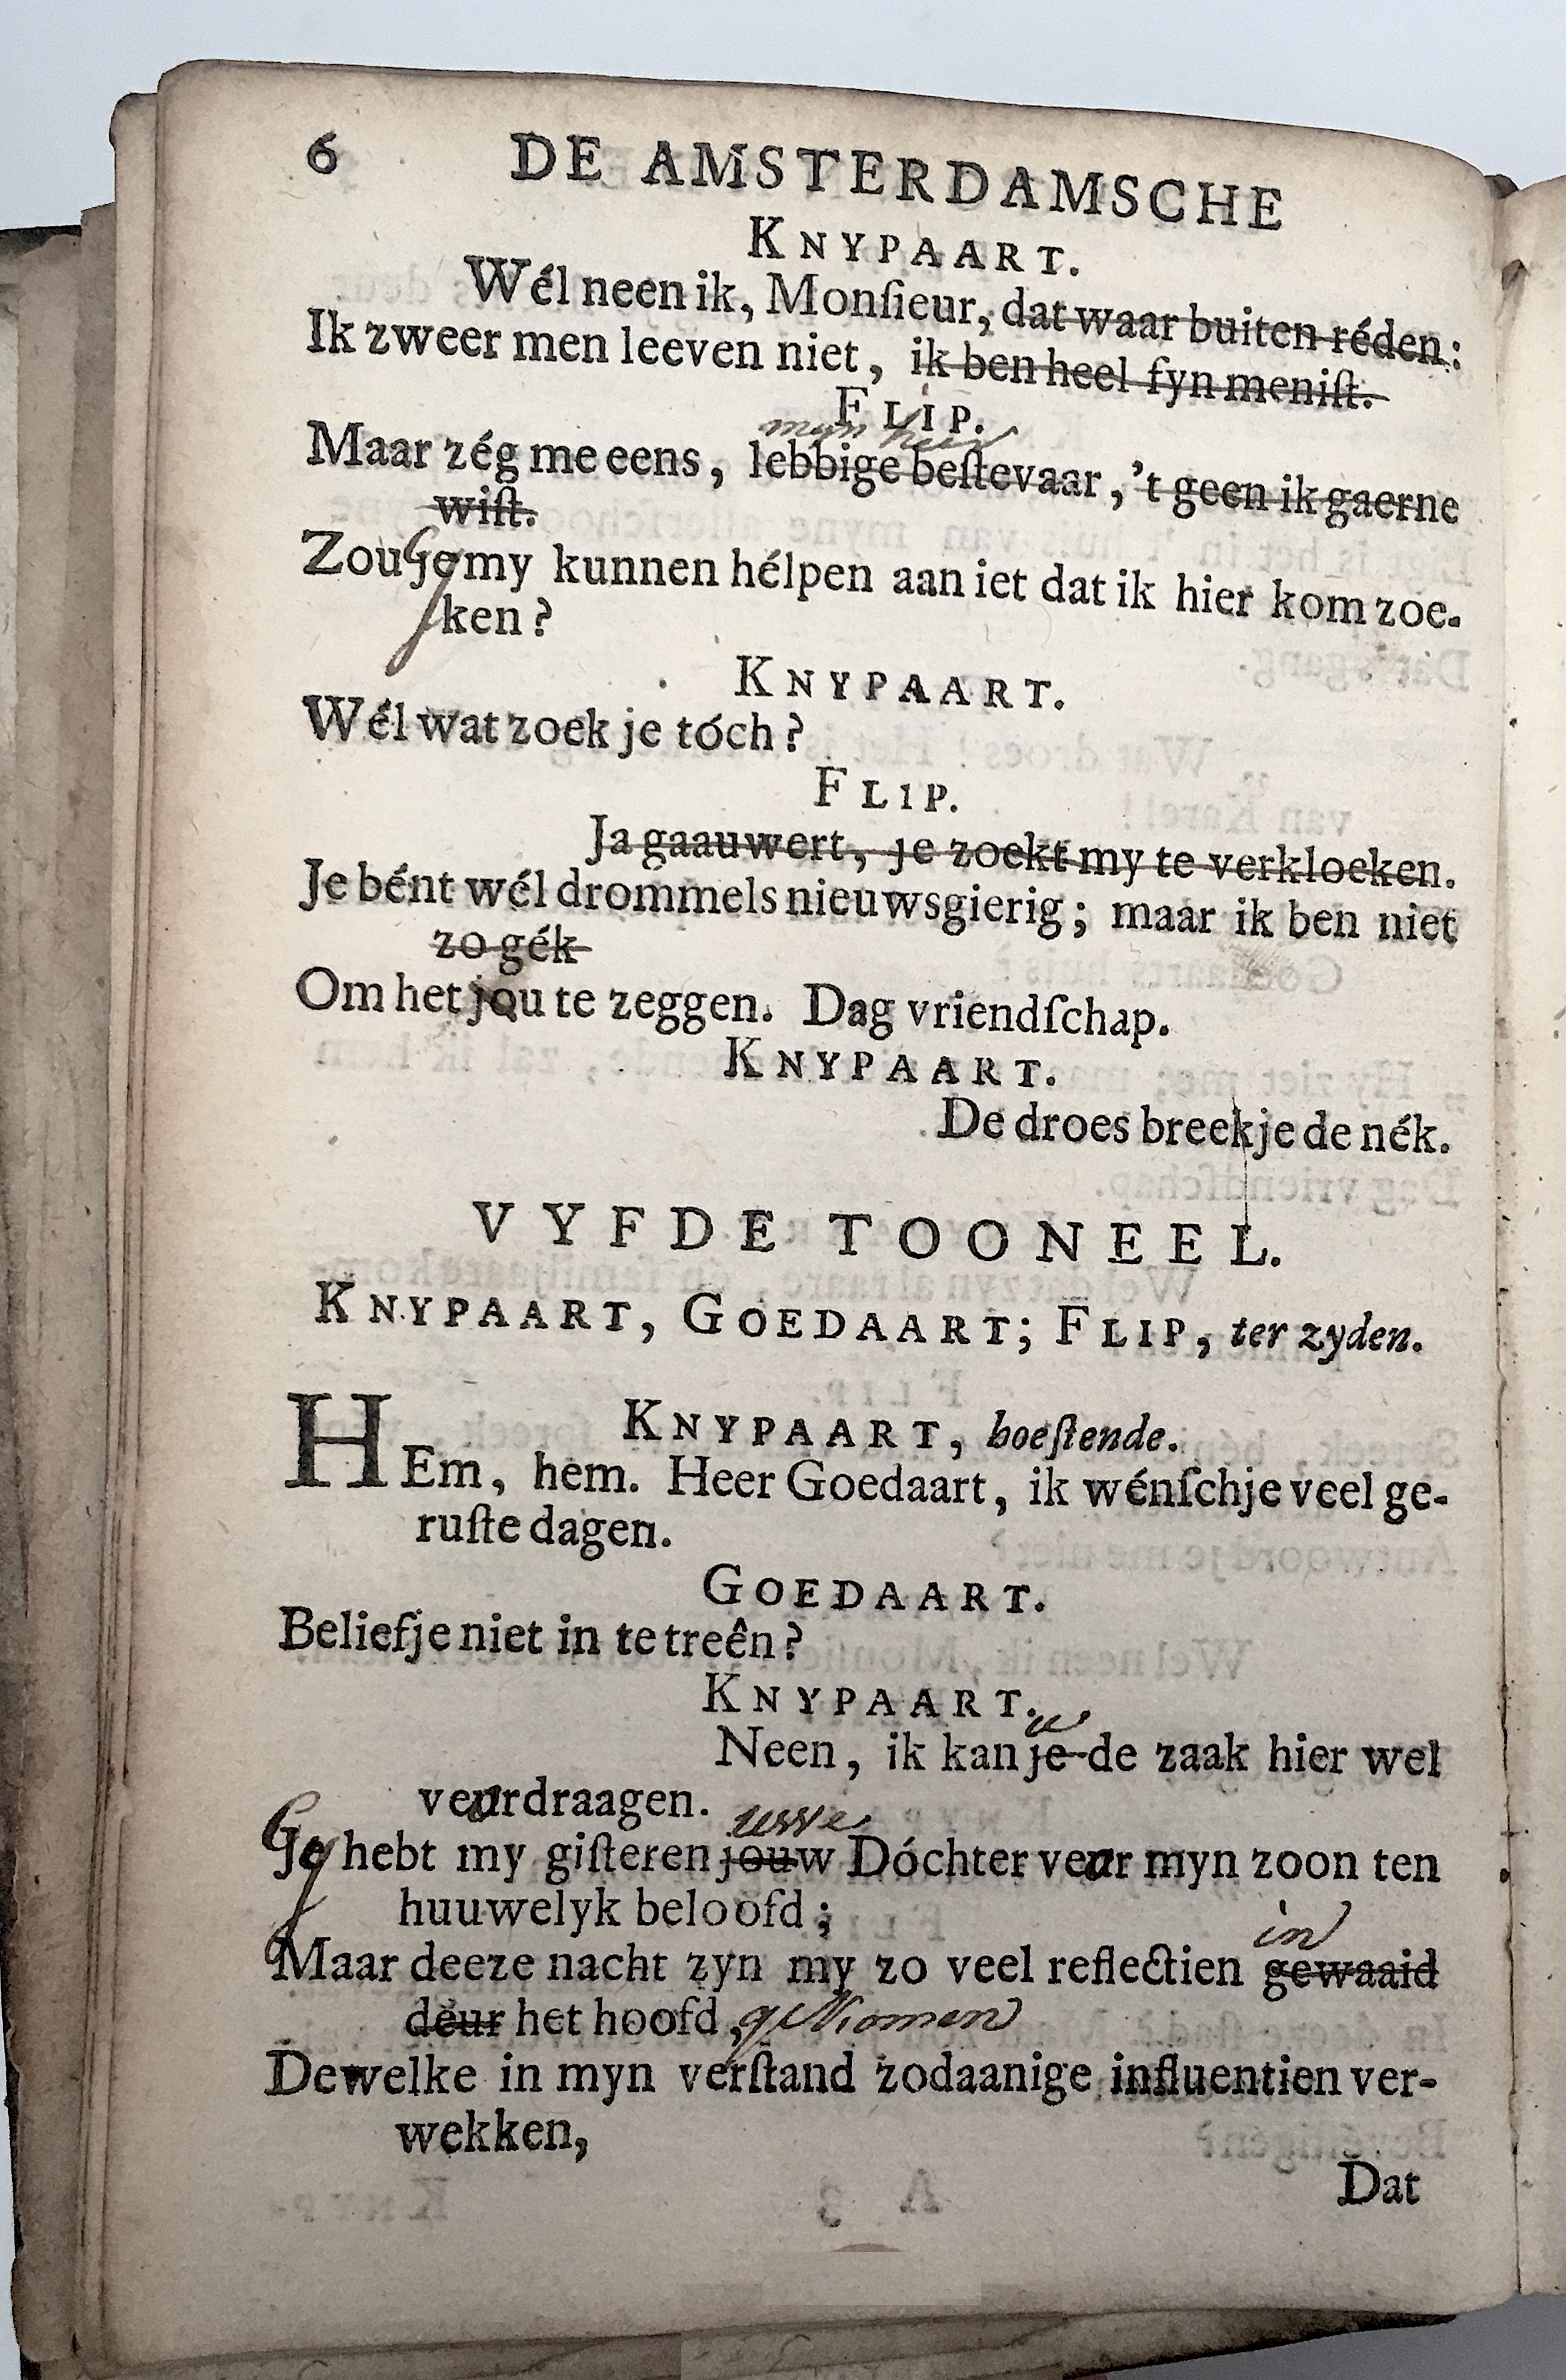 6 DE AMSTERDAMSCHE
KNYPAART.
Wél neen ik, Monſieur, dat waar buiten réden:
Ik zweer men leeven niet, ik ben heel fyn meniſt.
FLIP.
myn heer
Maar zég me eens, lebbige beſtevaar, 't geen ik gaerne
wiſt.
Zou je my kunnen hélpen aan iet dat ik hier kom zoe-
ken?
KNYPAART.
Wél wat zoek je tóch?
FLIP.
Ja gaauwert, je zoekt my te verkloeken.
Je bént wél drommels nieuwsgierig; maar ik ben niet
zo gék
Om het jou te zeggen. Dag vriendſchap.
KNYPAART.
De droes breek je de nék.
VYFDE TOONEEL.
KNYPAART, GOEDAART; FLIP, ter zyden.
KNYPAART, hoeſtende.
HEm, hem. Heer Goedaart, ik wénſch je veel ge-
ruſte dagen.
GOEDAART.
Belief je niet in te treên?
KNYPAART.
u
Neen, ik kan je de zaak hier wel
veurdraagen.
uwe
Gy hebt my giſteren jouw Dóchter veur myn zoon ten
huuwelyk beloofd;
in
Maar deeze nacht zyn my zo veel reflectien gewaaid
deur het hoofd, gekomen
Dewelke in myn verſtand zodaanige influentien ver-
wekken,
Dat